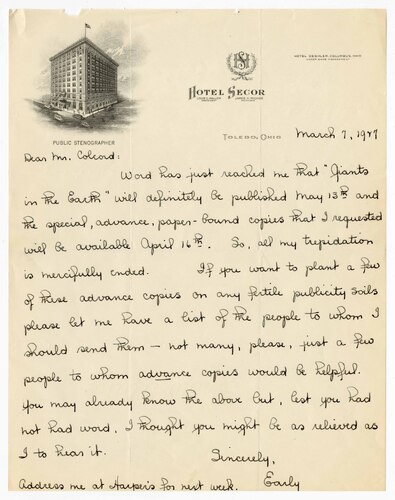 HOTEL SECOR
TOLEDO, OHIO
PUBLIC STENOGRAPHER
March 7, 1927
Dear Mr. Colcord:
Word has just reached me that "Giants
in the Earth" will definitely be published May 13th and
the special, advance, paper-bound copies that I requested
will be available April 14th. So, all my trepidation
is mercifully ended. If you want to plant a few
of these advance copies on any fertile publicity soils
please let me have a list of the people to whom I
should send them — not many, please, just a few
people to whom advance copies would be helpful.
You may already know the above but, lest you had
not had word, I thought you might be as relieved as
I to hear it.
Sincerely,
Address me at Harper's for next week.